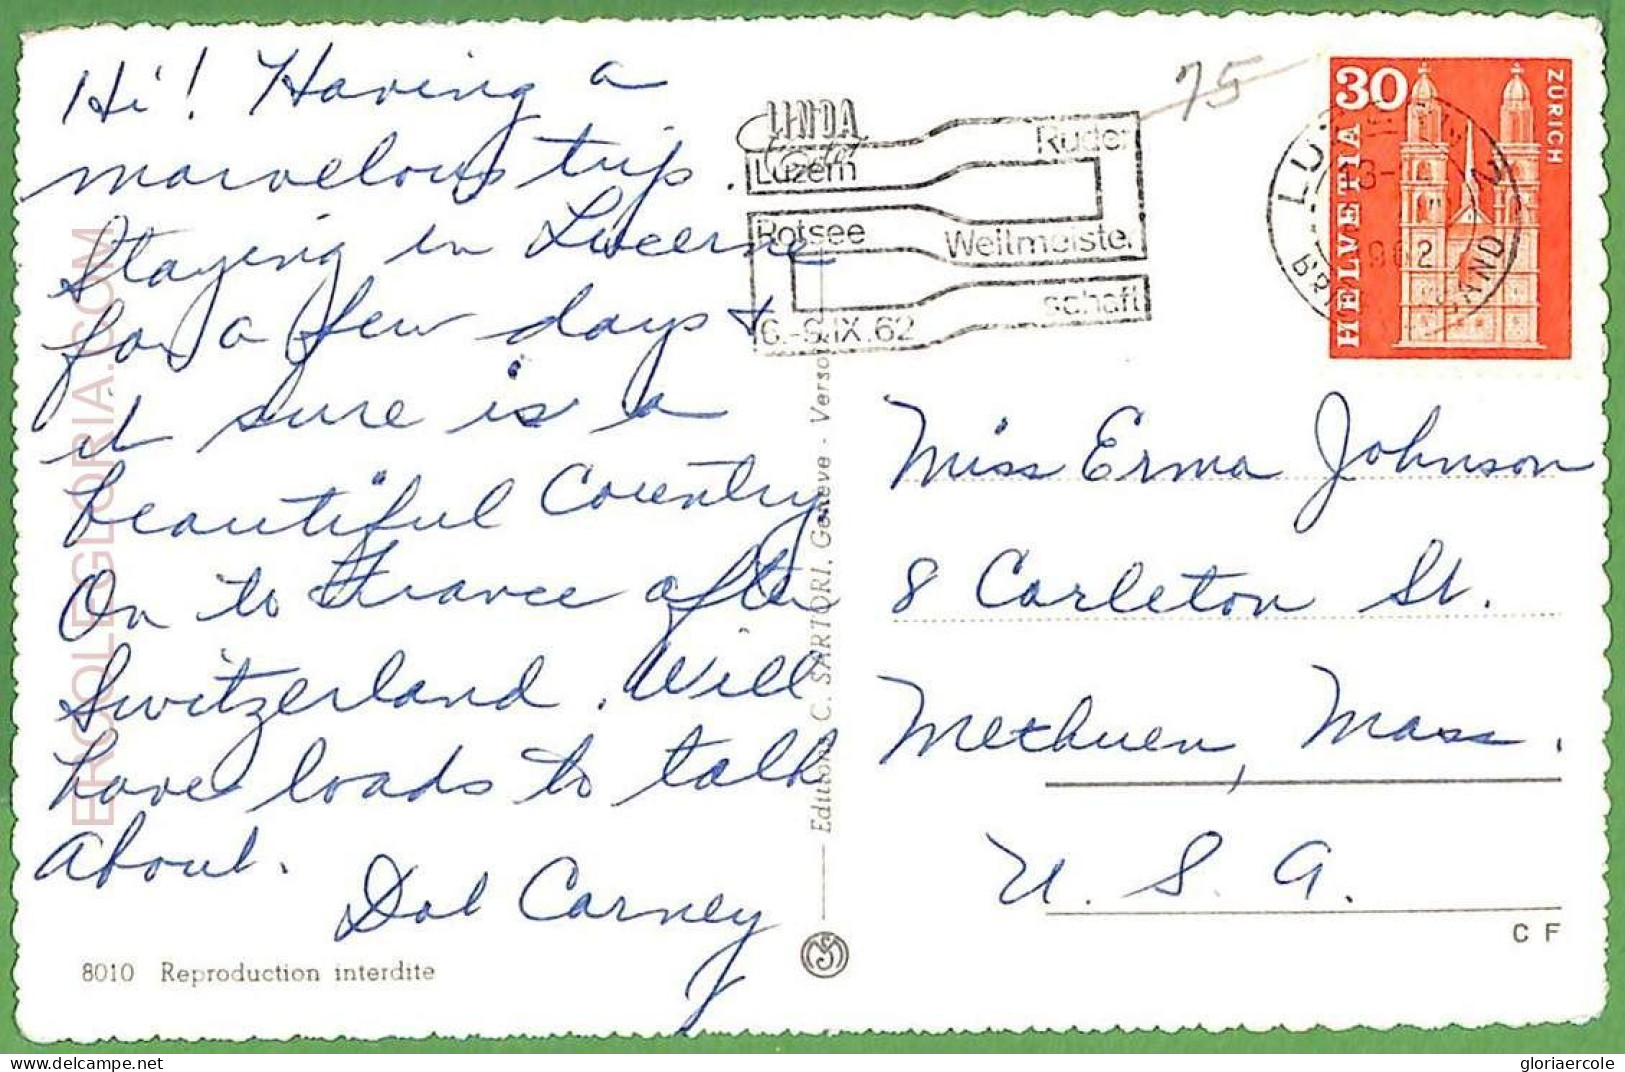 Hi! Having a
marvelous trip.
Staying in Lucerne
for a few days +
it sure is a
beautiful Country
On to France after
Switzerland. Will
have loads to talk
about.
Dot Carney
8010 Reproduction interdite
Editions C. SARTORI, Genève - Verso
LINDA
Luzern
Ruder
Rotsee
Weltmeister
schaft
6.-9.IX.62
75
30
HELVETIA
ZÜRICH
1962
Miss Erma Johnson
8 Carleton St.
Methuen, Mass.
U. S. A.
C F
ERCOLEGLORIA.COM
delcampe.net
gloriaercole